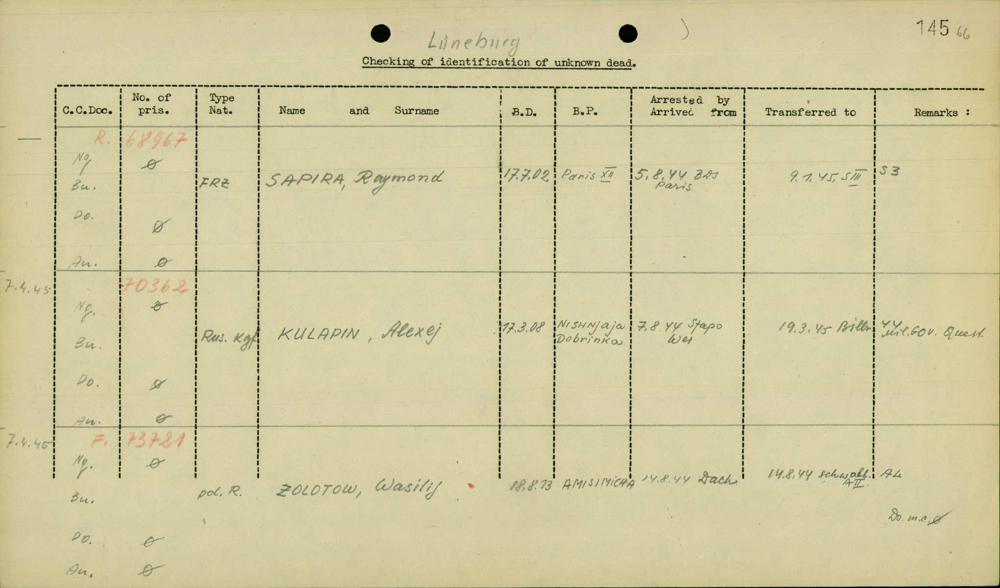 145 66
Lüneburg
Checking of identification of unknown dead.
C.C.Doc. No. of pris. Type Nat. Name and Surname B.D. B.P. Arrested by Arrived from Transferred to Remarks :
R. 68967
Ng ø
Bu. FRZ SAPIRA, Raymond 17.7.02 Paris XII 5.8.44 BdS Paris 9.1.45, SIII S3
Do. ø
Au. ø
7.4.45 70362
Ng. ø
Bu. Rus. Kgf KULAPIN, Alexej 17.3.08 NISHNJAJA Dobrinka 7.8.44 Stapo Wei 19.3.45 Mil.Gov. Quest.
Do. ø
Au. ø
7.4.45 F. 73721
Ng. ø
Bu. pol. R. ZOLOTOW, Wasilij 18.8.73 AMISIMICHA 14.8.44 Dach 14.8.44 AII A4
Do. ø Do. m.c. ø
Au. ø